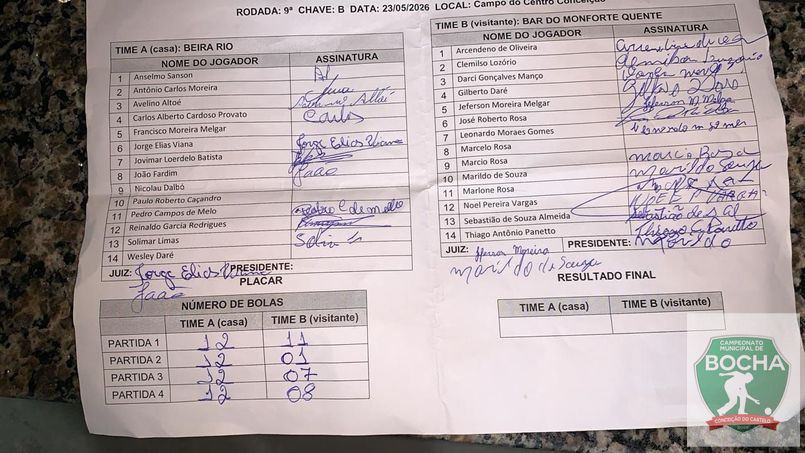 RODADA: 9ª CHAVE: B DATA: 23/05/2026 LOCAL: Campo do Centro Conceição
TIME A (casa): BEIRA RIO
NOME DO JOGADOR ASSINATURA
1 Anselmo Sanson
2 Antônio Carlos Moreira
3 Avelino Altoé
4 Carlos Alberto Cardoso Provato Carlos
5 Francisco Moreira Melgar
6 Jorge Elias Viana Jorge Elias Viana
7 Jovimar Loerdelo Batista
8 João Fardim João
9 Nicolau Dalbó
10 Paulo Roberto Caçandro
11 Pedro Campos de Melo
12 Reinaldo Garcia Rodrigues
13 Solimar Limas
14 Wesley Daré
JUIZ: Jorge Elias Viana PRESIDENTE:
João
PLACAR
NÚMERO DE BOLAS
TIME A (casa) TIME B (visitante)
PARTIDA 1 12 11
PARTIDA 2 12 01
PARTIDA 3 12 07
PARTIDA 4 12 08
TIME B (visitante): BAR DO MONFORTE QUENTE
NOME DO JOGADOR ASSINATURA
1 Arcendeno de Oliveira
2 Clemilso Lozório
3 Darci Gonçalves Manço
4 Gilberto Daré
5 Jeferson Moreira Melgar Jeferson M Melgar
6 José Roberto Rosa
7 Leonardo Moraes Gomes
8 Marcelo Rosa
9 Marcio Rosa
10 Marildo de Souza Marildo Souza
11 Marlone Rosa
12 Noel Pereira Vargas NOEL P VARGAS
13 Sebastião de Souza Almeida Sebastião de S al
14 Thiago Antônio Panetto
JUIZ: Jeferson Moreira PRESIDENTE: Marildo
Marildo de Souza
RESULTADO FINAL
TIME A (casa) TIME B (visitante)
CAMPEONATO
MUNICIPAL DE
BOCHA
CONCEIÇÃO DO CASTELO